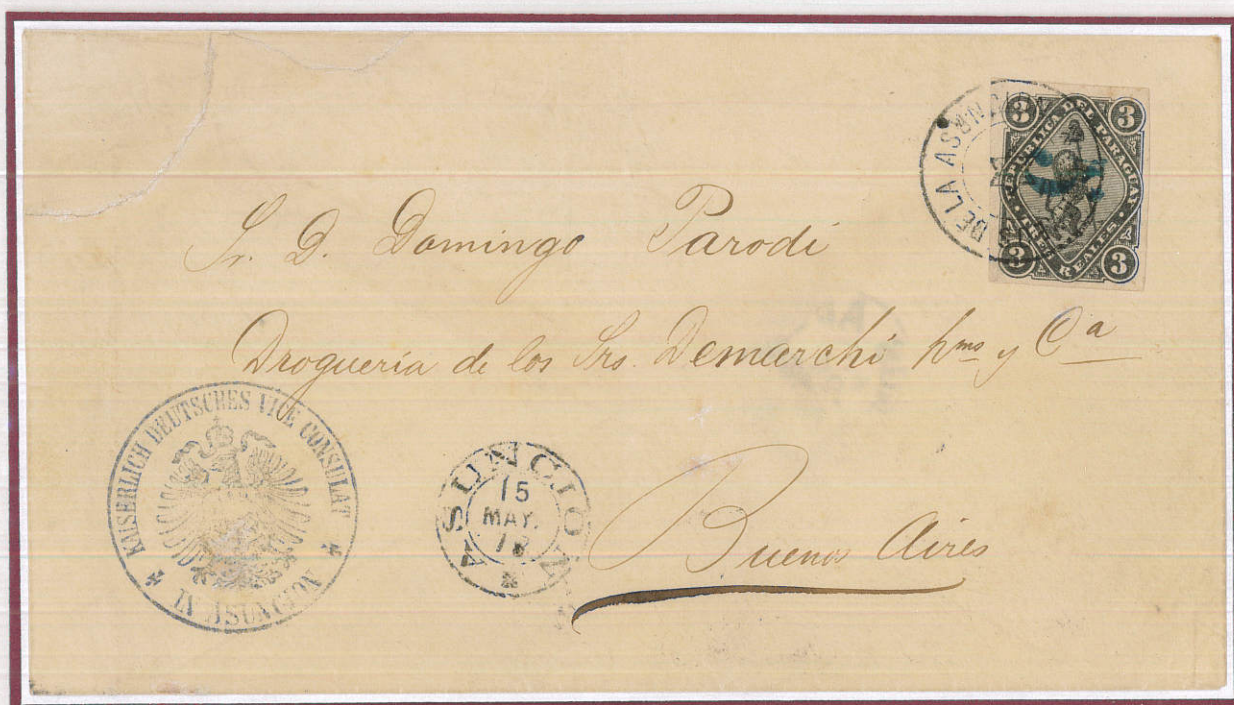 DE LA ASUNCION
3 3
REPUBLICA DEL PARAGUAY
5
TRES REALES
3 3
Sr. D. Domingo Parodi
Droguería de los Srs. Demarchi hmos y Ca
Buenos Aires
KAISERLICH DEUTSCHES VICE CONSULAT
IN ASUNCION
ASUNCION
15
MAY.